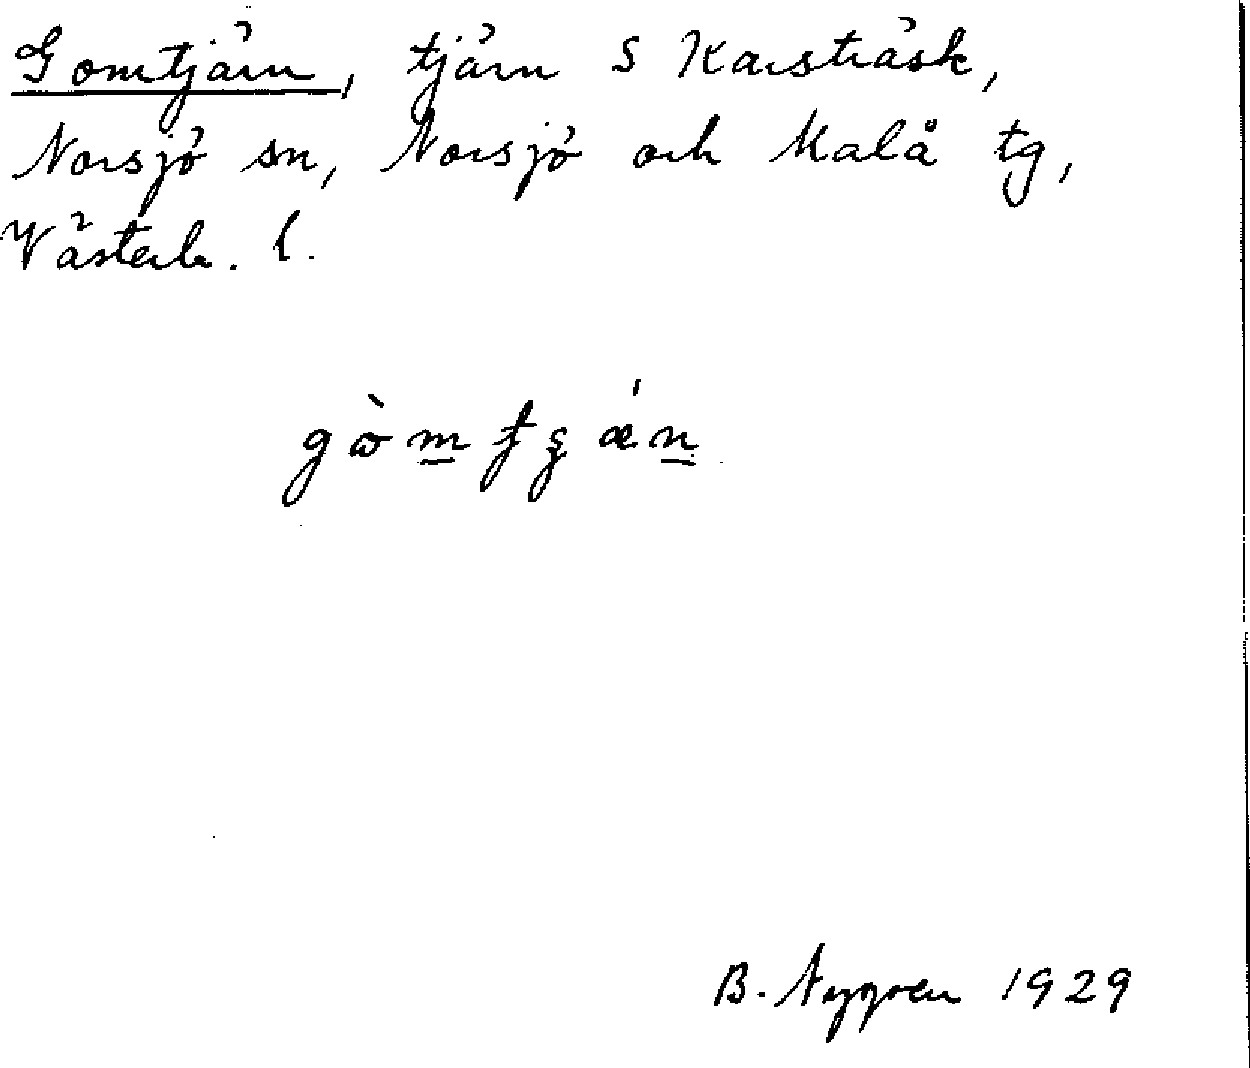 Gomtjärn, tjärn S Karsträsk,
Norsjö sn, Norsjö och Malå tg,
Västerb. l.
B. Nygren 1929